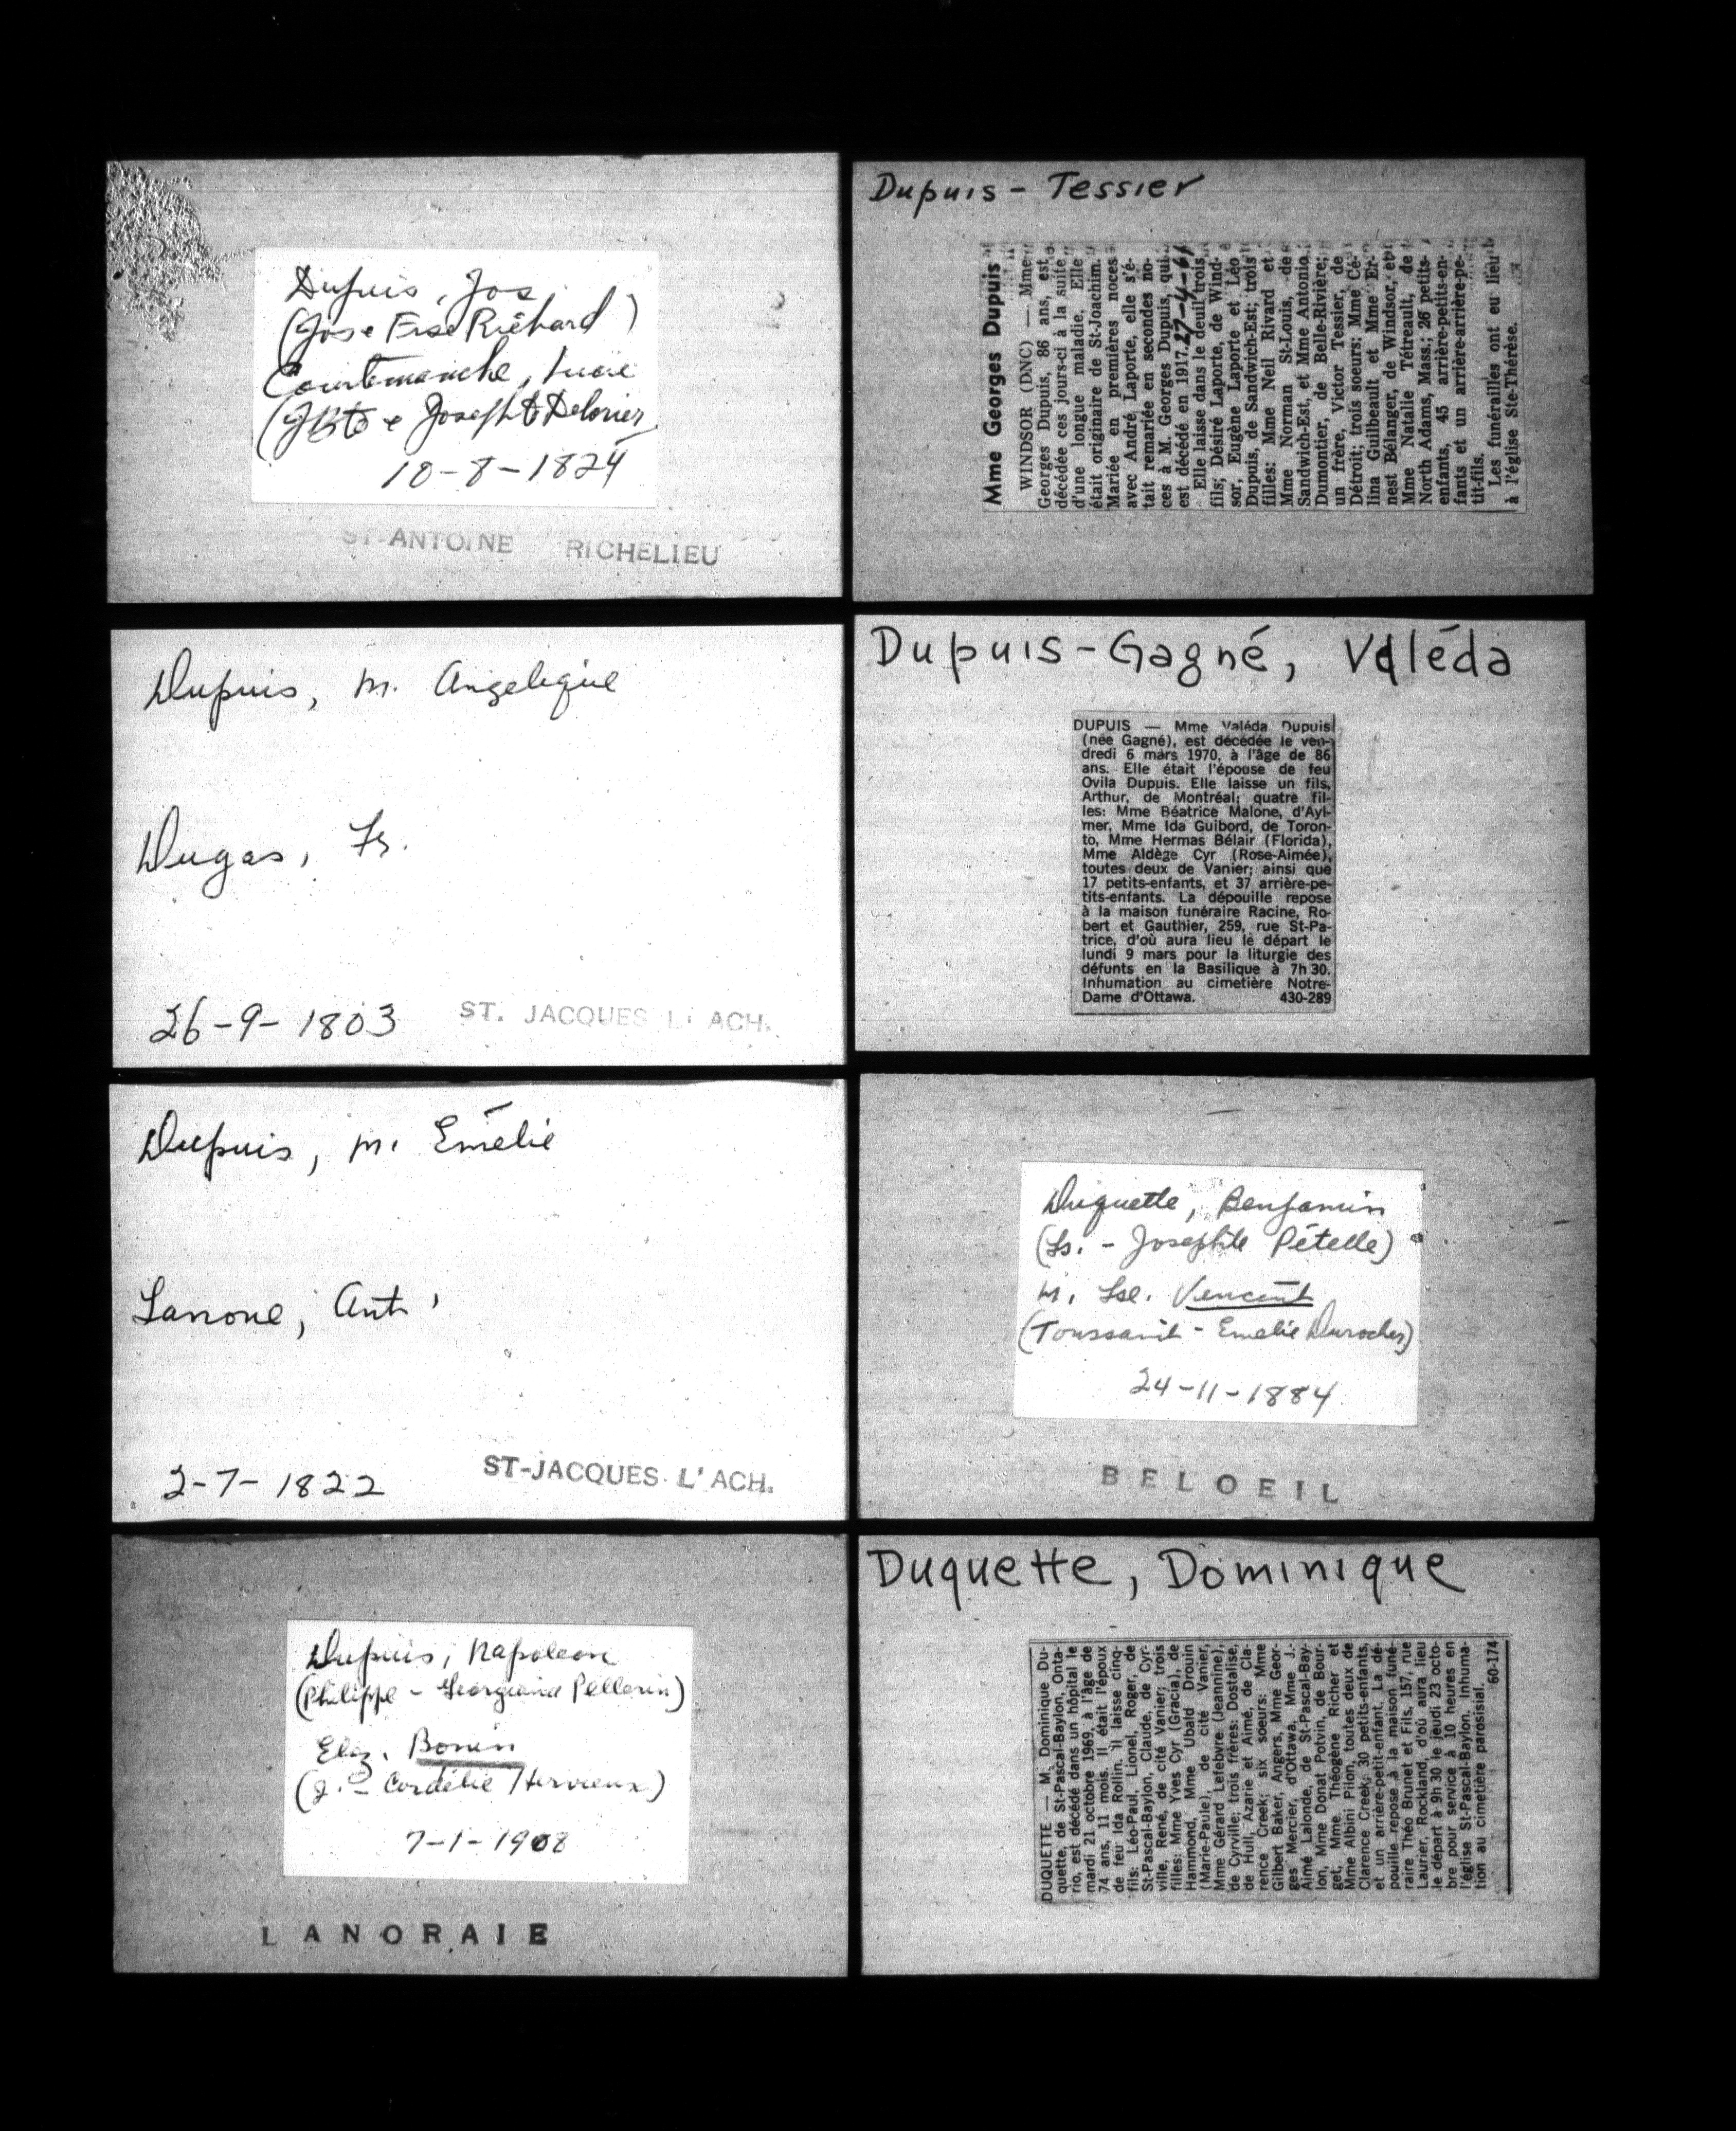 Dupuis, Jos
(Jos & Frse Richard)
Courtemanche, Lucie
(JBte & Josephte Delorier
10-8-1824
ST-ANTOINE RICHELIEU
Dupuis, m. Angelique
Dugas, Fr.
26-9-1803
ST. JACQUES L' ACH.
Dupuis, m. Emélie
Ant.
2-7-1822
ST-JACQUES L' ACH.
Dupuis, Napoleon
(Philippe - Georgiana Pellerin)
Eliz. Bonin
(J. - Cordélie Hervieux)
7-1-1908
LANORAIE
Dupuis - Tessier
Mme Georges Dupuis
WINDSOR (DNC) — Mme
Georges Dupuis, 86 ans, est
décédée ces jours-ci à la suite
d'une longue maladie. Elle
était originaire de St-Joachim.
Mariée en premières noces
avec André Laporte, elle s'é-
tait remariée en secondes no-
ces à M. Georges Dupuis, qui
est décédé en 1917. 27-4-61
Elle laisse dans le deuil trois
fils; Désiré Laporte, de Wind-
sor, Eugène Laporte et Léo
Dupuis, de Sandwich-Est; trois
filles: Mme Neil Rivard et
Mme Norman St-Louis, de
Sandwich-Est, et Mme Antonio
Dumontier, de Belle-Rivière;
un frère, Victor Tessier, de
Détroit; trois soeurs; Mme Cé-
lina Guilbeault et Mme Er-
nest Bélanger, de Windsor, et
Mme Natalie Tétreault, de
North Adams, Mass.; 26 petits-
enfants, 45 arrière-petits-en-
fants et un arrière-arrière-pe-
tit-fils.
Les funérailles ont eu lieu
à l'église Ste-Thérèse.
Dupuis-Gagné, Valéda
DUPUIS — Mme Valéda Dupuis
(née Gagné), est décédée le ven-
dredi 6 mars 1970, à l'âge de 86
ans. Elle était l'épouse de feu
Ovila Dupuis. Elle laisse un fils,
Arthur, de Montréal; quatre fil-
les: Mme Béatrice Malone, d'Ayl-
mer, Mme Ida Guibord, de Toron-
to, Mme Hermas Bélair (Florida),
Mme Aldège Cyr (Rose-Aimée),
toutes deux de Vanier; ainsi que
17 petits-enfants, et 37 arrière-pe-
tits-enfants. La dépouille repose
à la maison funéraire Racine, Ro-
bert et Gauthier, 259, rue St-Pa-
trice, d'où aura lieu le départ le
lundi 9 mars pour la liturgie des
défunts en la Basilique à 7h 30.
Inhumation au cimetière Notre-
Dame d'Ottawa. 430-289
Duquette, Benjamin
(Ls. - Josephte Pételle)
m. Lse. Vencent
(Toussaint - Emelie Durocher)
24-11-1884
BELOEIL
Duquette, Dominique
DUQUETTE — M. Dominique Du-
quette, de St-Pascal-Baylon, Onta-
rio, est décédé dans un hôpital le
mardi 21 octobre 1969, à l'âge de
74 ans, 11 mois. Il était l'époux
de feu Ida Rollin. Il laisse cinq
fils: Léo-Paul, Lionel, Roger, de
St-Pascal-Baylon, Claude, de Cyr-
ville, René, de cité Vanier; trois
filles: Mme Yves Cyr (Gracia), de
Hammond, Mme Ubald Drouin
(Marie-Paule), de cité Vanier,
Mme Gérard Lefebvre (Jeannine),
de Cyrville; trois frères: Dostalise,
de Hull, Azarie et Aimé, de Cla-
rence Creek; six soeurs: Mme
Gilbert Baker, Angers, Mme Geor-
ges Mercier, d'Ottawa, Mme J.-
Aimé Lalonde, de St-Pascal-Bay-
lon, Mme Donat Potvin, de Bour-
get, Mme Théogène Richer et
Mme Albini Pilon, toutes deux de
Clarence Creek; 30 petits-enfants,
et un arrière-petit-enfant. La dé-
pouille repose à la maison funé-
raire Théo Brunet et Fils, 157, rue
Laurier, Rockland, d'où aura lieu
le départ à 9h 30 le jeudi 23 octo-
bre pour service à 10 heures en
l'église St-Pascal-Baylon. Inhuma-
tion au cimetière paroissial.
60-174